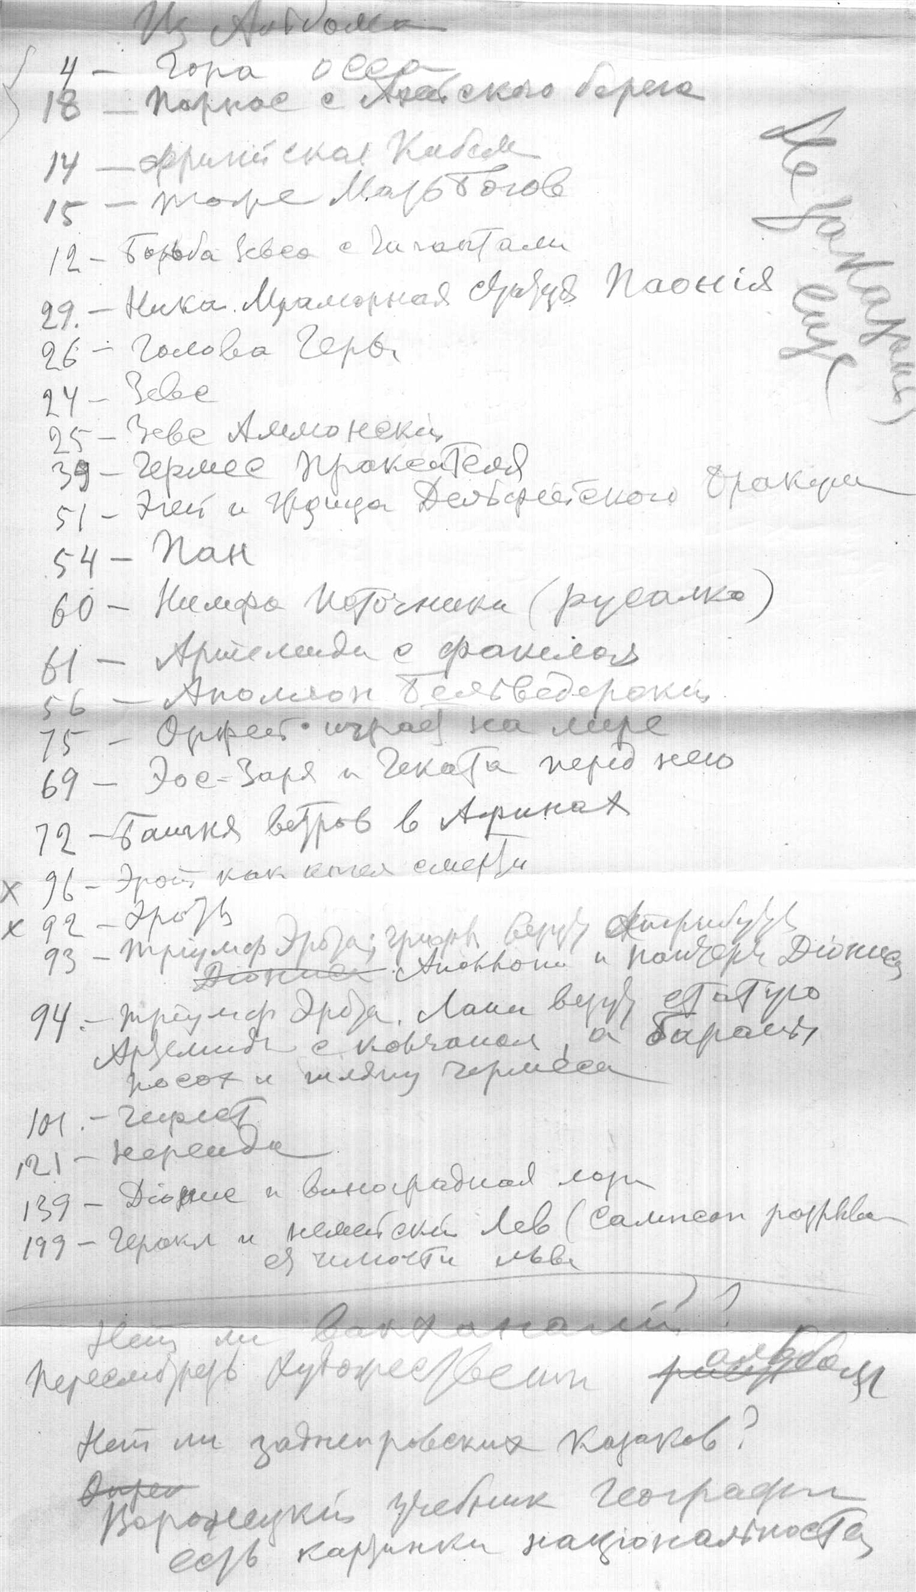 Из Альбома
4 – Гора Осса
18 – Парнас с Ахейского берега
14 – Фригийская Кибела
15 – тоже Мать Богов
12 – Борьба Зевса с Гигантами
29. – Ника. Мраморная статуя Паонія
26 – Голова Геры
24 – Зевс
25 – Зевс Аммонский
39 – Гермес Праксителя
51 – Эгей и Дельфийского оракула
54 – Пан
60 – Нимфа Источника (русалка)
61 – Артемида с факелом
56 – Аполлон Бельведерский
75 – Орфей играет на лире
69 – Эос-Заря и Геката перед нею
72 – Башня ветров в Афинах
x 96 – Эрот как гений смерти
x 92 – Эротъ
93 – Тріумф Эрота; везут Аттрибуты
Діониса Аполлона и пантеры Діониса
94. – Тріумф Эрота. Лани везут статую
Артемиды с колчаном, а бараны
посох и шляпу Гермеса
101. – Гефест
121 – Нереида
139 – Діонис и виноградная лоза
199 – Геракл и немейский Лев (Самсон разрыва
ет челюсти льва
Нет ли Вакханалий?
Пересмотреть художествен альбомы
Нет ли заднепровских казаков?
Воронецкий учебник Географии
есть картинки національностей
Не заказаны
еще